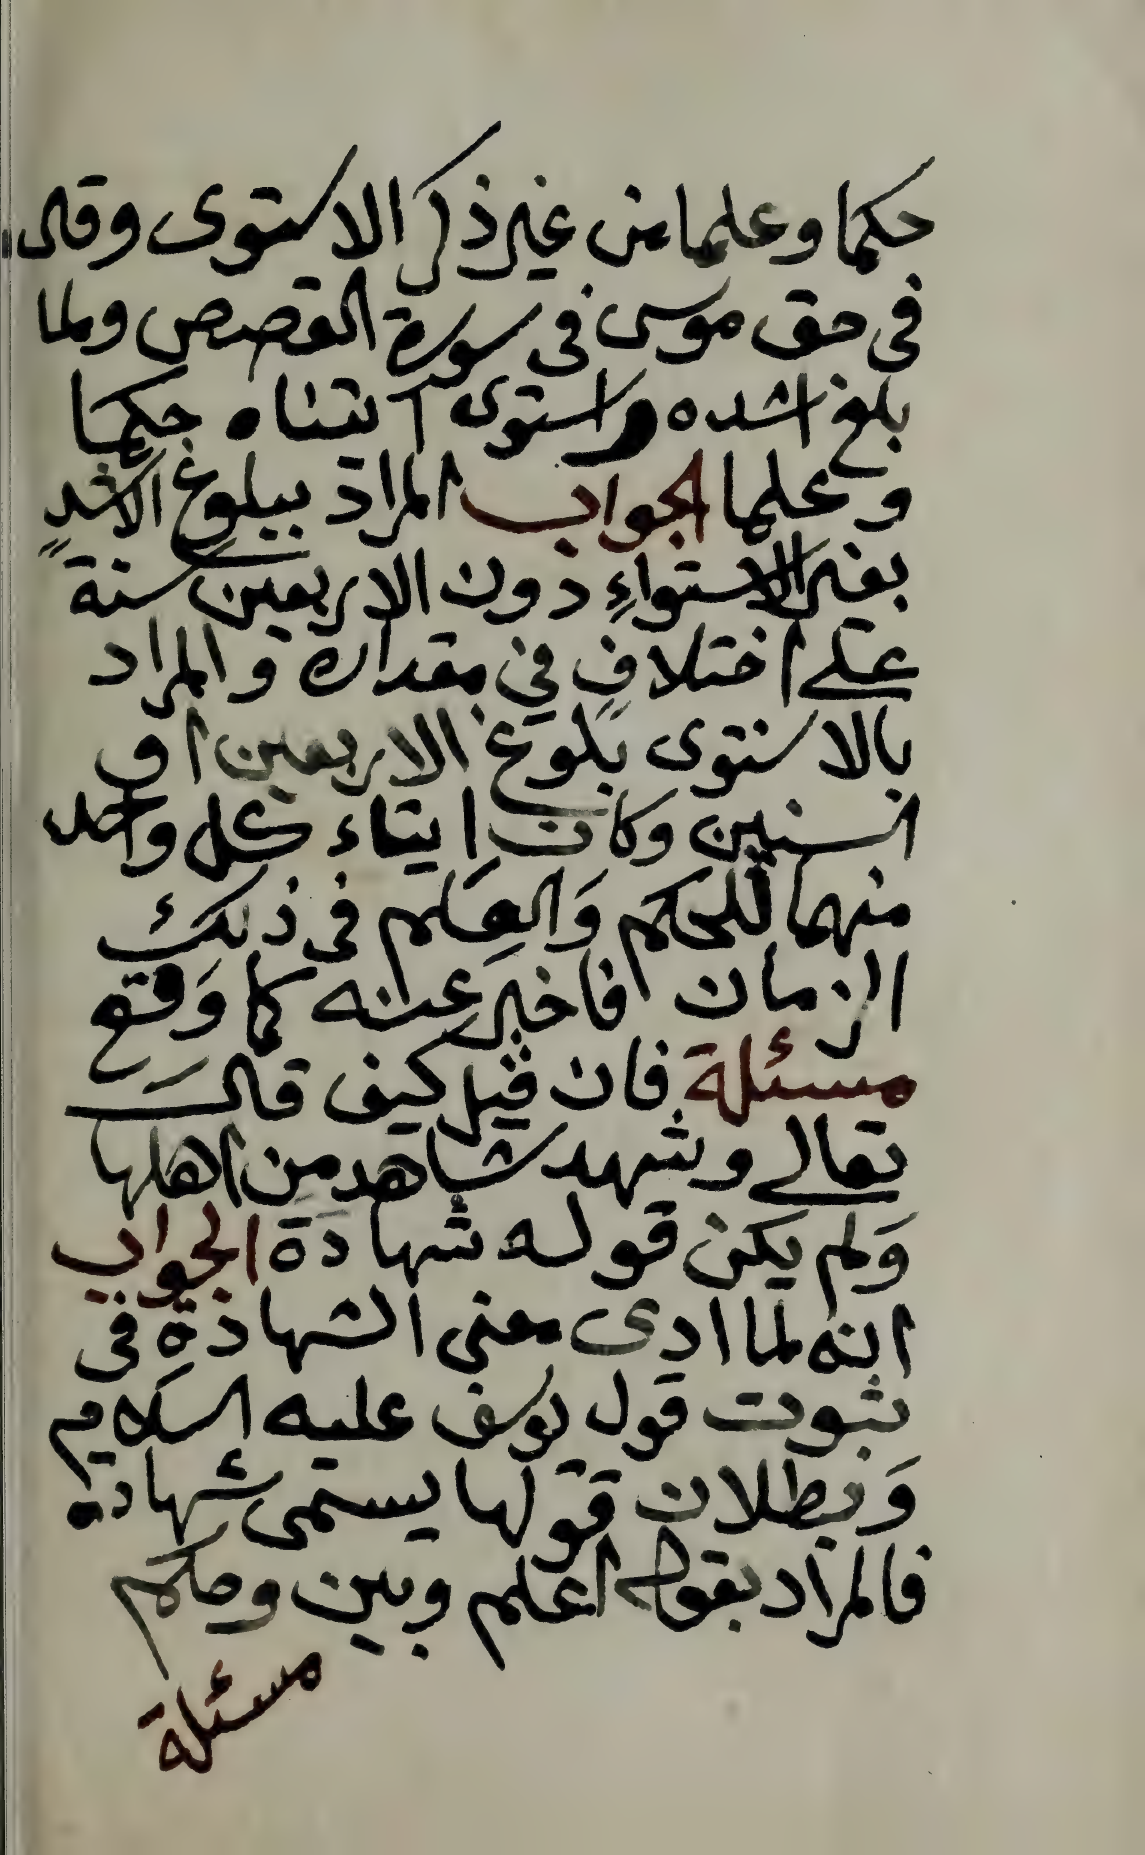 حكما وعلما من غير ذكر الاستوى وقال
فى حق موسى فى سورة القصص ولما
بلغ اشده واستوى اتيناه حكما
وعلما الجواب المراد ببلوغ الاشد
بغير الاستواء دون الاربعين سنة
على اختلاف فى مقداره والمراد
بالاستوى بلوغ الاربعين او
الستين وكان ايتاء كل واحد
منهما للحكم والعلم فى ذلك
الزمان فاخبر عنه كما وقع
مسئلة فان قيل كيف قال
تعالى وشهد شاهد من اهلها
ولم يكن قوله شهادة الجواب
انه لما ادى معنى الشهادة فى
ثبوت قول يوسف عليه السلام
وبطلان قولها يسمى شهادة
فالمراد بقوله اعلم وبين وحكم
مسئلة